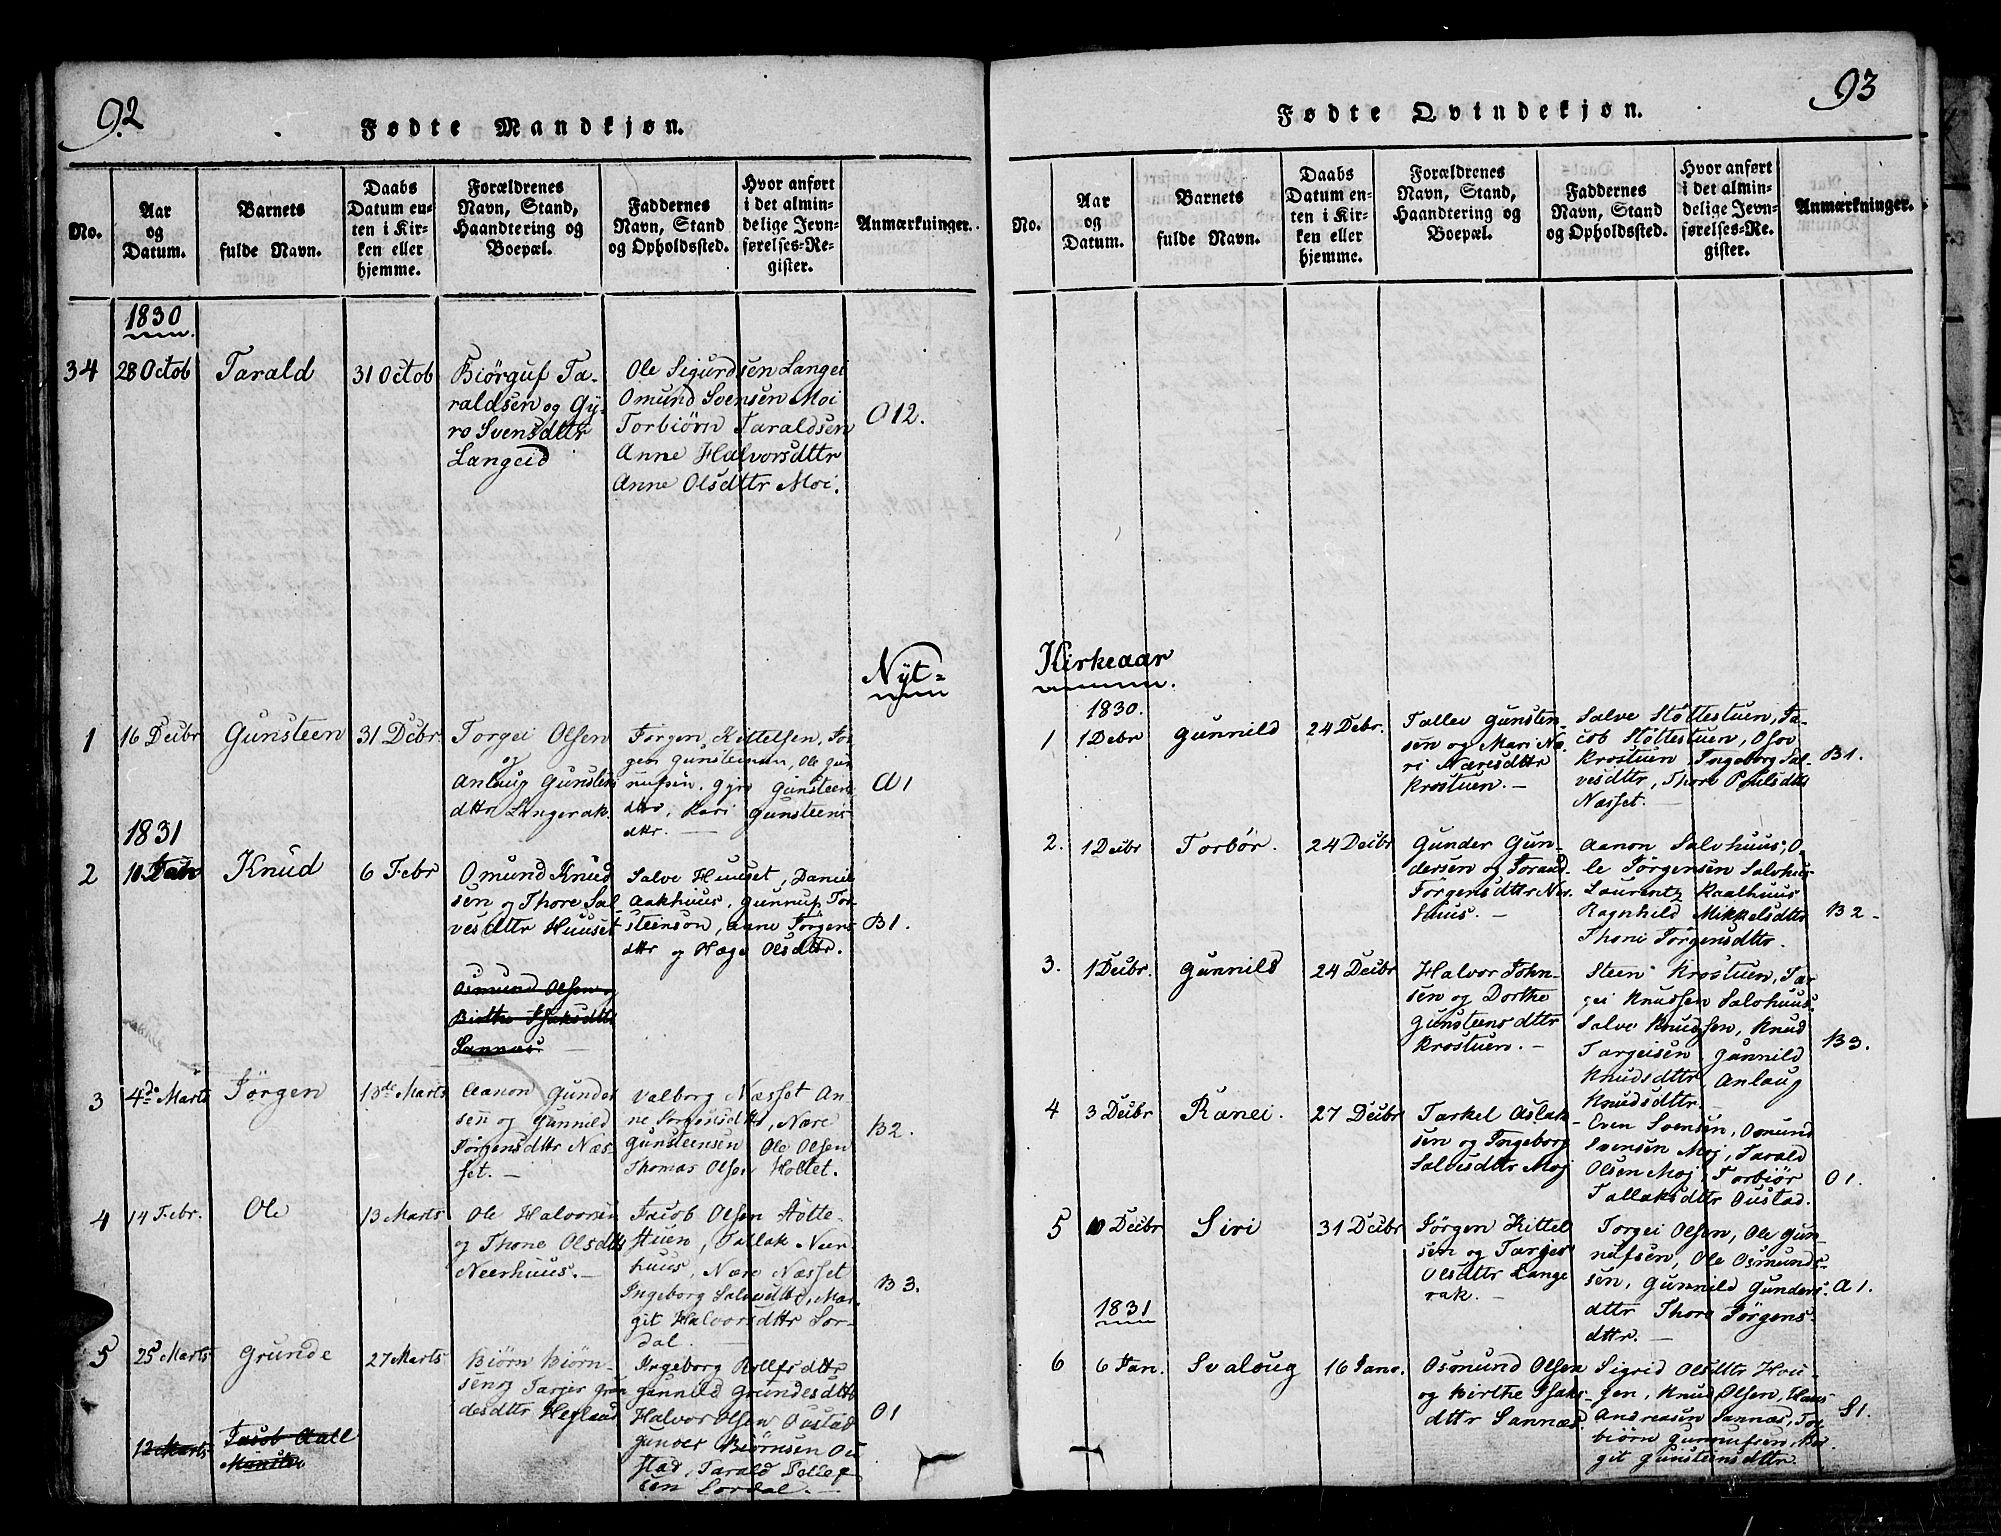 92
Fødte Mandkjøn.
No.
Aar
og
Datum.
Barnets
fulde Navn.
Daabs
Datum en-
ten i Kir-
ken eller
hjemme.
Forældrenes
Navn, Stand,
Haandtering og
Boepæl.
Faddernes
Navn, Stand
og Opholdssted.
Hvor anført
i det almin-
delige Jevn-
førelses-Re-
gister.
Anmærkninger.
1830
34
28 Octob
Tarald
31 Octob
Biörguf Ta-
raldsen og Gy-
ro Svensdttr
Langeid
Ole Sigurdsen Langei
Omund Svensen Moi
Torbiörn Taraldsen
Anne Halvorsdttr
Anne Olsdttr Moi.
O12.
Nyt=
1
16 Decbr
Gunsteen
31 Decbr.
Torgei Olsen
og
Anlaug Gunsteens
dttr Langerak.
Jörgen Kittelsen, Tor
geer Gunsteinsen, Ole Gun
nufsen. Gyro Gunsteens
dttr, Kari Gunsteens
dttr.
A1
1831
2
Knud
6 Febr
Omund Knud
sen og Thore Sal-
vesdttr Huuset
Salve Huuset, Daniel
Aakhuus, Gunnuf Tor-
steenson, Anne Jörgens
dttr og Hæge Olsdttr.
B1.
Osmund Olsen og
Birthe Isaksdttr
Sannæs.
3
4de Marts
Jörgen
13de Marts
Aanon Gunder
sen og Gunnild
Jörgensdttr Næs-
set.
Valborg Næsset An-
ne Jorgensdttr, Nære
Gunsteensen Ole Olsen
Thomas Olsen Holtet.
B2.
4
14 Febr.
Ole
13 Marts
Ole Halvorsen
og Thone Olsdttr
Neerhuus.
Jacob Olsen Støtte-
stuen, Tallak Neer-
huus, Nære Næsset
Ingeborg Salvesdttr, Mar-
git Halvorsdttr Lor-
dal
B3.
5
25 Marts
Grunde
27 Marts
Biörn Biörn-
sen og Tarjer Grun
desdttr Hegland
Ingeborg Rollfsdttr
Gunnild Grundesdttr
Halvor Olsen Oustad
Gunder Biörnsen Ou
stad, Tarald Tollef
sen Lordal.
O1
12 Marts
Jacob Aall
Münster
93
Fødte Qvindekjøn.
No.
Aar
og
Datum.
Barnets
fulde Navn.
Daabs
Datum en-
ten i Kir-
ken eller
hjemme.
Forældrenes
Navn, Stand,
Haandtering og
Boepæl.
Faddernes
Navn, Stand
og Opholdssted.
Hvor anført
i det almin-
delige Jevn-
førelses-Re-
gister.
Anmærkninger.
Kirkeaar
1830.
1
1 Debr
Gunnild
24 Debr.
Tallev Gunsten-
sen og Mari Næ-
ri Næresdttr
Krostuen.
Salve Støttestuen, Ja-
cob Støttestuen, Olov
Krostuen Ingeborg Sal-
vesdttr, Thore Poulsdttr
Næsset.
B1.
2.
1 Decbr
Torbör.
24 Decbr
Gunder Gun-
dersen og Torand
Jörgensdttr Ner-
huus.
Aanon Salohuus, O-
le Jörgensen Salohuus
Laurentz Kaalhuus
Ragnhild Mikkelsdttr
Thoni Jörgensdttr.
B2
3.
1 Decbr.
Gunnild
24 Decbr
Halvor John-
sen og Dorthe
Gunsteensdttr
Krostuen.
Steen Krostuen, Tar-
gei Knudsen Salohuus
Salve Knudsen, Knud
Targeisen Gunnild
Knudsdttr Anlaug
Knudsdttr.
B3.
4
3 Decbr
Ranei.
27 Decbr
Tarkel Aslak
sen og Ingeborg
Salvisdttr Moj
Even Svensen, Osmund
Svensen Moj, Tarald
Olsen Moj, Torbiör
Tallaksdttr Oustad.
O1.
5
10 Decbr
Siri
31 Decbr
Jörgen Kittel
sen og Tarjer
Olsdttr Lange
rak.
Torgei Olsen, Ole Gun-
nufsen, Ole Osmunds-
sen, Gunnild Gunders-
dttr Thore Jörgens
dttr.
A1.
1831
6
6 Jan.
Svaloug
16 Janr.
Osmund Olsen
og Birthe Isaks-
dttr Sannæs
Sigrid Olsdttr Hou-
gen, Knud Olsen, Hans
Andreasen Sannæs, Tor
biörn Gunnufsen, Mar
git Gunsteensdttr
S1.